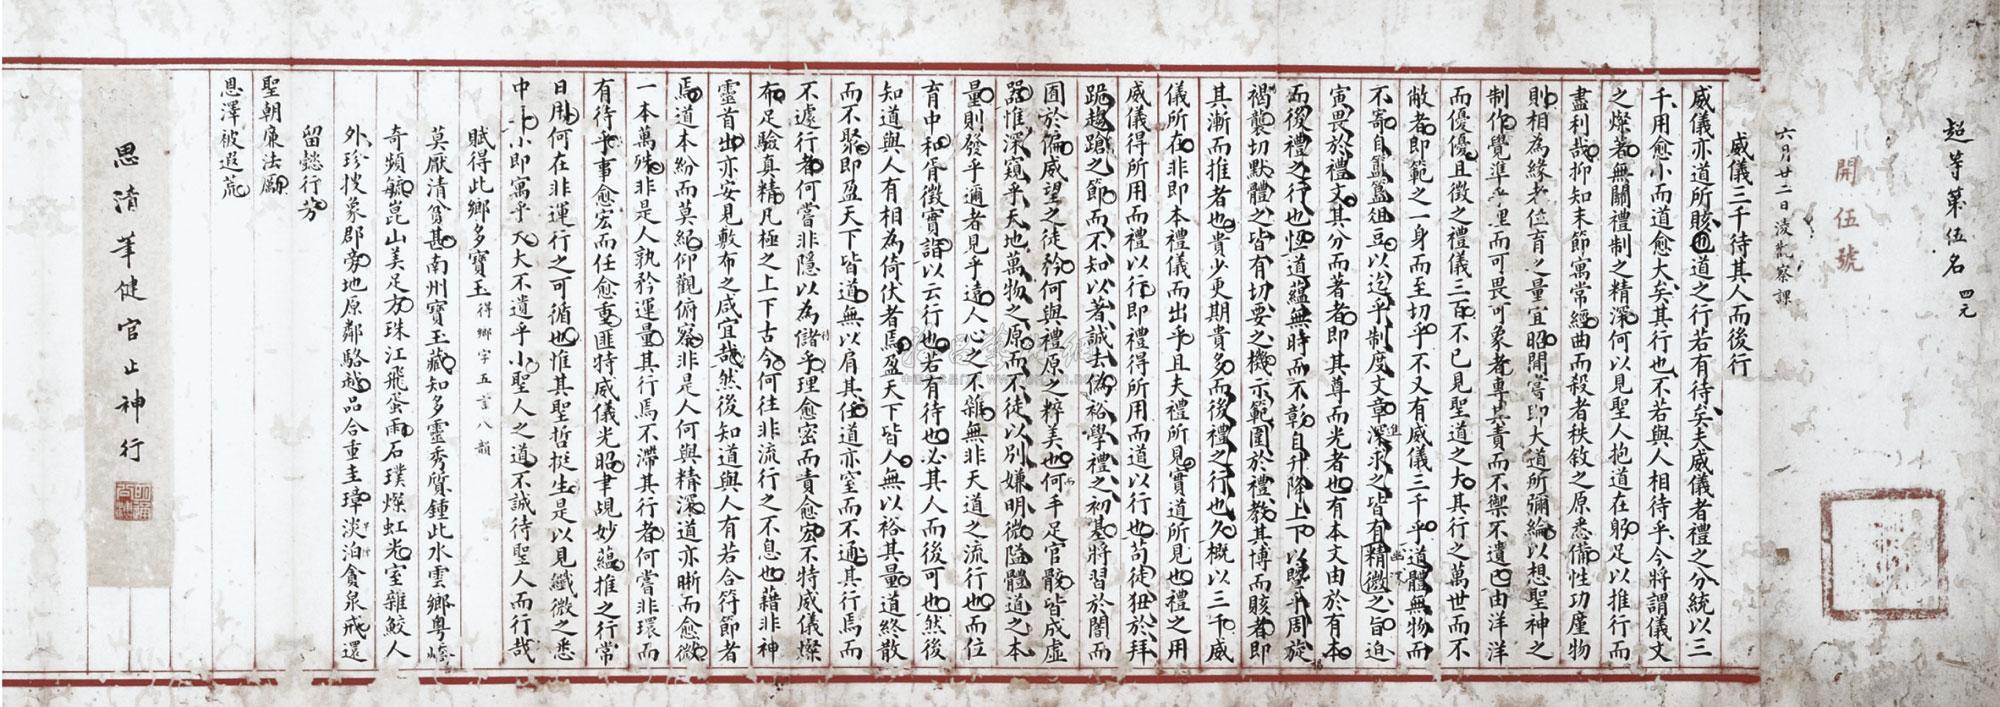 超等第伍名 四元
開伍號
六月廿二日凌 察課
威儀三千待其人而後行
威儀亦道所賅也道之行若有待矣夫威儀者禮之分統以三
千用愈小而道愈大矣其行也不若與人相待乎今將謂儀文
之燦著無關禮制之精深何以見聖人抱道在躬足以推行而
盡利哉抑知末節寓常經曲而殺者秩敘之原悉備性功廑物
則相為緣者位育之量宜昭閒嘗即大道所彌綸以想聖神之
制作覺準乎里而可畏可象者專其責而不禦不遺已由洋洋
而優優且徵之禮儀三百不已見聖道之大其行之萬世而不
敝者即範之一身而至切乎不又有威儀三千乎道體無物而
不寄自簠簋俎豆以迄乎制度文章深求之皆有精微之旨迫
寅畏於禮文其分而著者即其尊而光者也有本文由於有本
而後禮之行也恆道蘊無時而不彰自升降上下以暨乎周旋
裼襲切默體之皆有切要之機示範圍於禮教其博而賅者即
其漸而推者也貴少更期貴多而後禮之行也久概以三千威
儀所在非即本禮儀而出乎且夫禮所見實道所見也禮之用
威儀得所用而禮以行即禮得所用而道以行也苟徒狃於拜
跪趨蹌之節而不知以著誠去偽裕學禮之初基將習於闇而
囿於偏威望之徒矜何與禮原之粹美也何手足官骸皆成虛
器惟深窺乎天地萬物之原而不徒以別嫌明微隘體道之本
量則發乎邇者見乎遠人心之不雜無非天道之流行也而位
育中和胥徵實詣以云行也若有待也必其人而後可也然後
知道與人有相為倚伏者焉盈天下皆人無以裕其量道終散
而不聚即盈天下皆道無以肩其任道亦窒而不通其行焉而
不遽行者何嘗非隱以為儲乎理愈密而責愈宏不特威儀燦
布足驗真精凡極之上下古今何往非流行之不息也藉非神
靈首出亦安見敷布之咸宜哉然後知道與人有若合符節者
焉道本紛而莫紀仰觀俯察非是人何與精深道亦晰而愈微
一本萬殊非是人孰矜運量其行焉不滯其行者何嘗非環而
有待乎事愈宏而任愈重匪特威儀光昭聿覘妙蘊推之行常
日用何在非運行之可循也惟其聖哲挺生是以見纖微之悉
中一小即寓乎大大不遺乎小聖人之道不誠待聖人而行哉
賦得此鄉多寶玉 得鄉字五言八韻
莫厭清貧甚南州寶玉藏知多靈秀質鍾此水雲鄉粵嶠
奇頻毓崑山美足方珠江飛蜑雨石璞燦虹光室雜鮫人
外珍搜象郡旁地原鄰駱越品合重圭璋淡泊貪泉戒還
留懿行芳
聖朝廉法勵
恩澤被遐荒
思清筆健官止神行